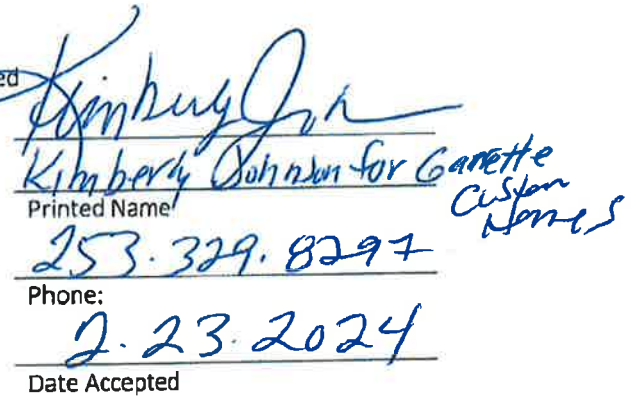 ed
Kimberly Joh
Kimberly Johnson for Garrette
Custom
Homes
Printed Name
253.329.8297
Phone:
2.23.2024
Date Accepted